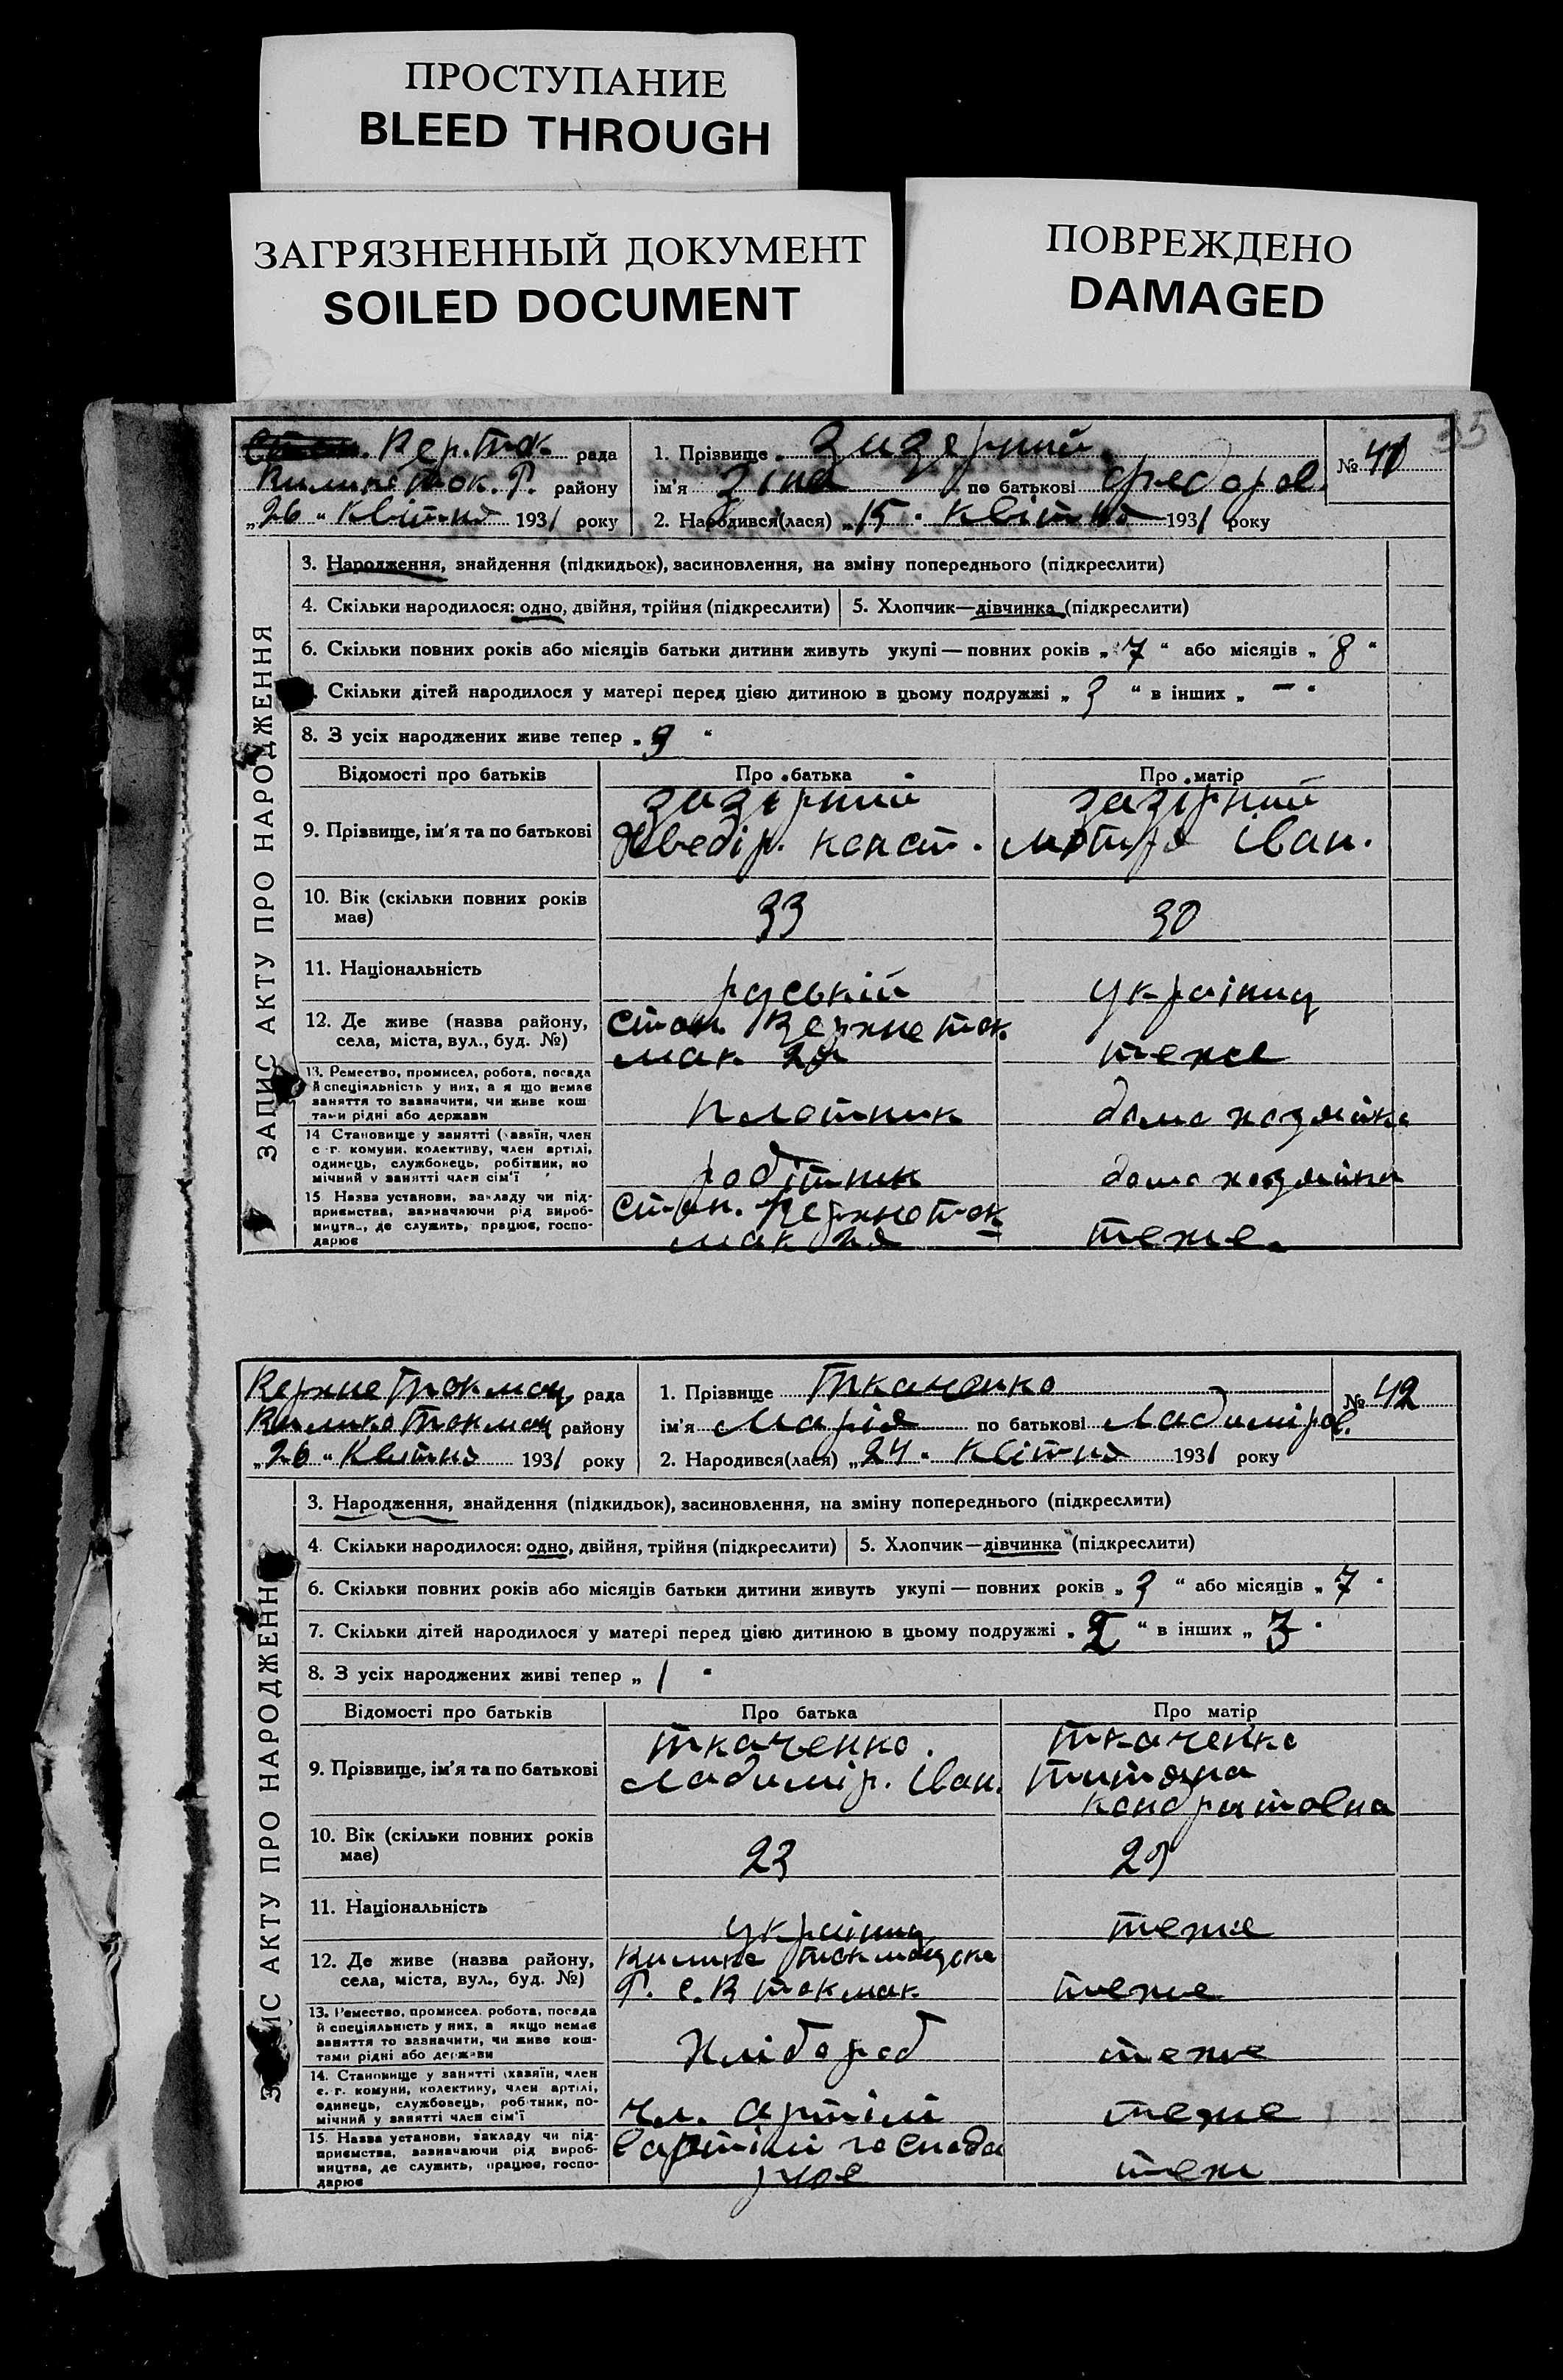 ПРОСТУПАНИЕ
BLEED THROUGH
ЗАГРЯЗНЕННЫЙ ДОКУМЕНТ
SOILED DOCUMENT
ПОВРЕЖДЕНО
DAMAGED
35
ЗАПИС АКТУ ПРО НАРОДЖЕННЯ
Вер. Ток. рада
Ток. Р. району
„26“ Квітня 1931 року
1. Прізвище
ім'я Зіна по батькові Федоров.
№ 41
2. Народився(лася) „15“ Квітня 1931 року
3. Народження, знайдення (підкидьок), засиновлення, на зміну попереднього (підкреслити)
4. Скільки народилося: одно, двійня, трійня (підкреслити) 5. Хлопчик—дівчинка (підкреслити)
6. Скільки повних років або місяців батьки дитини живуть укупі — повних років „7“ або місяців „8“
Скільки дітей народилося у матері перед цією дитиною в цьому подружжі „3“ в інших „—“
8. З усіх народжених живе тепер „3“
Відомості про батьків Про батька Про матір
9. Прізвище, ім'я та по батькові
зазірний зазірний
Хведір. конст. мотря Іван.
10. Вік (скільки повних років має) 33 30
11. Національність руській українц
12. Де живе (назва району, села, міста, вул., буд. №)
Стан. Верхне ток
мак теже
13. Ремество, промисел, робота, посада
й спеціяльність у них, а я що немає
заняття то зазначити, чи живе кош
тами рідні або держави
плотник домо хозяйка
14 Становище у занятті (хавяїн, член
с г. комуни, колективу, член артілі,
одинець, службовець, робітник, по
мічний у занятті член сім'ї
робітник домо хозяйка
15 Назва установи, закладу чи під-
приємства, зазначаючи рід вироб-
ництва, де служить, працює, госпо-
дарює
Стан. Верхнеток
теже
ЗАПИС АКТУ ПРО НАРОДЖЕНН
Верхне Токмац рада
Токмац району
„26“ Квітня 1931 року
1. Прізвище Ткаченко
ім'я Марія по батькові Ладиміров.
№ 42
2. Народився(лася) „24“ Квітня 1931 року
3. Народження, знайдення (підкидьок), засиновлення, на зміну попереднього (підкреслити)
4. Скільки народилося: одно, двійня, трійня (підкреслити) 5. Хлопчик—дівчинка (підкреслити)
6. Скільки повних років або місяців батьки дитини живуть укупі — повних років „3“ або місяців „7“
7. Скільки дітей народилося у матері перед цією дитиною в цьому подружжі „2“ в інших „3“
8. З усіх народжених живі тепер „1“
Відомості про батьків Про батька Про матір
9. Прізвище, ім'я та по батькові
ткаченко. ткаченко
Ладимір. Іван.
кондратовна
10. Вік (скільки повних років має) 23 29
11. Національність українц теже
12. Де живе (назва району, села, міста, вул., буд. №)
Р. с. В токмак теже
13. Ремество, промисел, робота, посада
й спеціяльність у них, а якщо немає
заняття то зазначити, чи живе кош-
тами рідні або держави
Хлібороб теже
14. Становище у занятті (хазяїн, член
с. г. комуни, колективу, член артілі,
одинець, службовець, робітник, по-
мічний у занятті член сім'ї
чл. артілі теже
15. Назва установи, закладу чи під-
приємства, зазначаючи рід вироб-
ництва, де служить, працює, госпо-
дарює
В артілі господа
рює теж